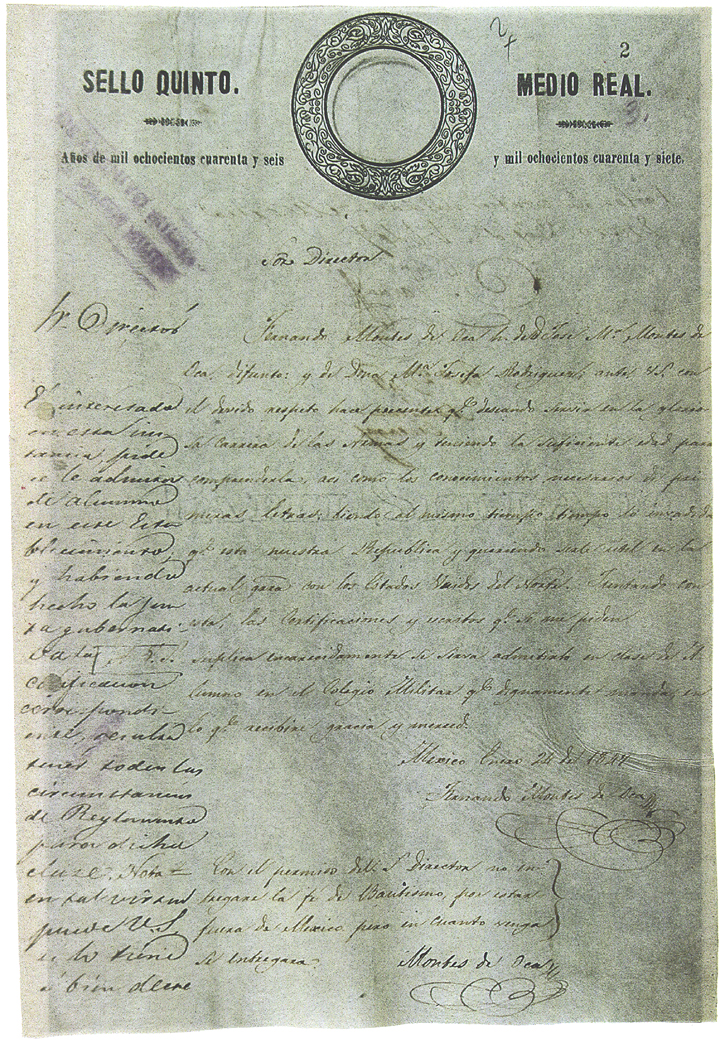 2
SELLO QUINTO.
MEDIO REAL.
Años de mil ochocientos cuarenta y seis
y mil ochocientos cuarenta y siete.
Sōr Director
Fernando Montes de Oca h. de D. Jose Mª Montes de
Oca, difunto: y de Dona Mª Josefa Rodriguez, ante V.S. con
el devido respeto hace presente: qᵉ deseando servir en la glorio-
sa carrera de las Armas y teniendo la suficiente edad para
comprenderla, asi como los conocimientos necesarios de pri-
meras letras: siendo al mismo tiempo tiempo lo invadida
qᵉ esta nuestra Republica y queriendo serle util en la
actual gara con los Estados Unidos del Norte. Juntando con
esta, las Certificaciones y escritos qᵉ se me piden
Suplica encarecidamente se sirva admitirlo en clase de A-
lumno en el Colegio Militar qᵉ dignamente manda, en
lo qᵉ recibire gracia y merced.
Mexico Enero 24 del 1847
Fernando Montes de Oca
Nota = Con el permiso del S. Director no en-
tregare la fe de Bautismo, por estar
fuera de Mexico pero en cuanto venga
se entregara.
Montes de Oca
Sr. Director
El interesado
en esta ins
tancia pide
se le admita
de alumno
en este Esta
blecimiento,
y habiendo
hecho la Jun
ta gubernati-
va la
calificacion
correspondi-
ente, resulta
tener todas las
circunstancias
de Reglamento
para dicha
clase.
en tal virtud
puede V.S.
si lo tiene
á bien decre